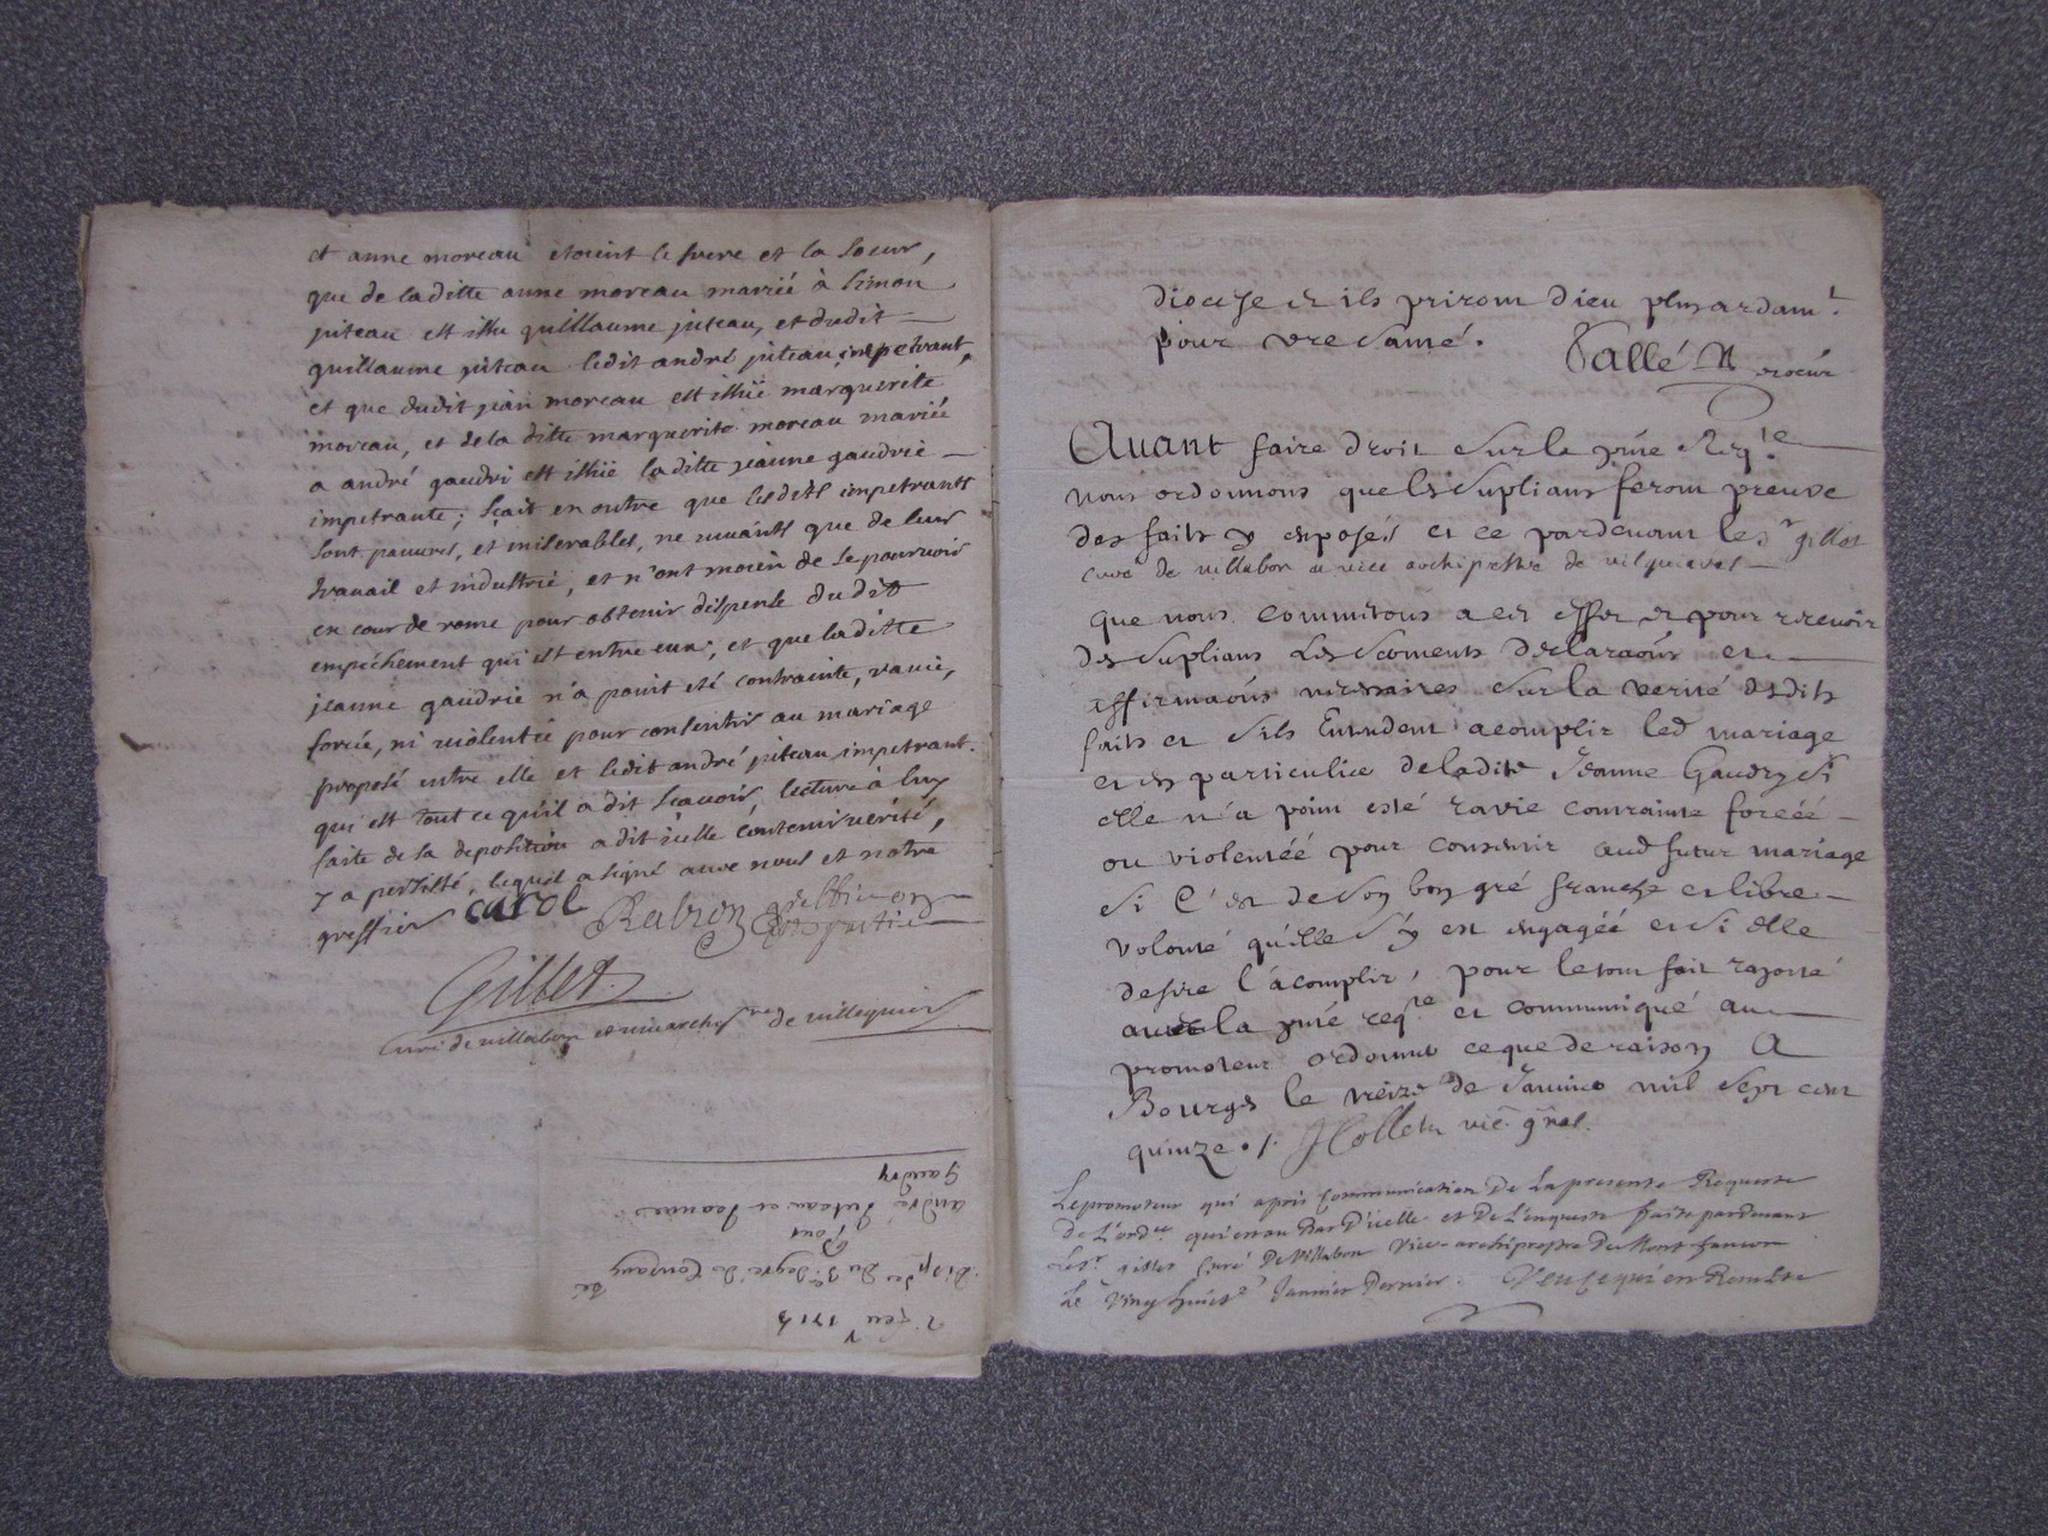 et anne moreau etoient le frere et la soeur,
que de laditte anne moreau mariée à simon
juteau est issu guillaume juteau, et dudit
guillaume juteau ledit andré juteau impetrant,
et que dudit jean moreau est issüe marguerite
moreau, et de la ditte marguerite moreau mariée
a andré gaudri est issüe laditte jeanne gaudrie
impetrante; sçait en outre que lesdits impetrants
sont pauures, et miserables, ne uiuants que de leur
trauail et industrie, et n'ont moien de se pouruoir
en cour de rome pour obtenir dispense dudit
empéchement qui est entre eux; et que laditte
jeanne gaudrie n'a point eté contrainte, rauie,
forcée, ni uiolentée pour consentir au mariage
proposé entre elle et ledit andré juteau impetrant.
qui est tout ce qu'il a dit sçauoir, lecture à luy
faite de sa deposition a dit icelle contenir uérité,
y a persisté, lequel a signé auec nous et notre
greffier carol Rabion greffier en
cette partie
Gillet
curé de uillabon et uice archip^tre de uillequier
2 feu^r 1715
Disp^ce du 3e degré de Consang^té
Pour
André Juteau et Jeanne
Gaudry
diocese et ils priront Dieu plus ardam^t
pour vre santé.
Vallé Procur
Auant faire droit sur la pnte Req^te
nous ordonnons que les Suplians feront preuve
des faits y exposés et ce pardevant le s^r gillet
curé de uillabon et uice archiprestre de uilquieres
que nous commitons a cet effet et pour recevoir
des Suplians les serments declaraôns et
affirmaôns necessaires sur la verité desdits
faits et s'ils Entendent acomplir led mariage
et en particulier de ladite Jeanne Gaudry si
elle n'a point esté ravie contrainte forcéé
ou violentéé pour consentir aud futur mariage
si c'est de son bon gré franche et libre
volonté qu'elle s'y est engagéé et si elle
desire l'acomplir, pour le tout fait raporté
avec la pnté req^te et communiqué au
promoteur ordonner ce que de raison A
Bourges le treize de Janvier mil sept cent
quinze ./. J Collet vic gnal.
Le promoteur qui apris Communication De La presente Requeste
de L'ord^ce qui est au Bas D'icelle et De L'enqueste faite pardevant
Le s^r gilles Curé De Villabon Vice-archiprestre De Montfaucon
Le Vingt huit^e Janvier Dernier.